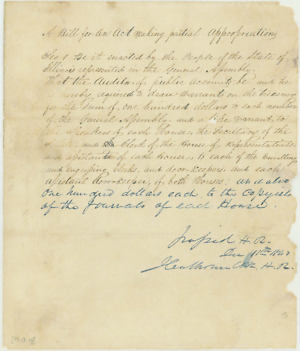 A Bill for An Act making partial Appropriations
Sec 1 Be it enacted by the People of the State of
Illinois represented in the General Assembly
That the Auditor of Public Accounts be and he
hereby required to draw warrants on the Treasury
for the sum of one hundred dollars to each member
of the General Assembly and a like warrant to
the Speakers of each House, the Secretary of the
and the Clerk of the House of Representatives
and assistants of each House, to each of the enrolling
and engrossing clerks, and door-keepers and each
assistant doorkeeper, of both Houses, and also
one hundred dollars each to the Copyists
of the Journals of each House.
H. R.
Dec 1840
H. R.